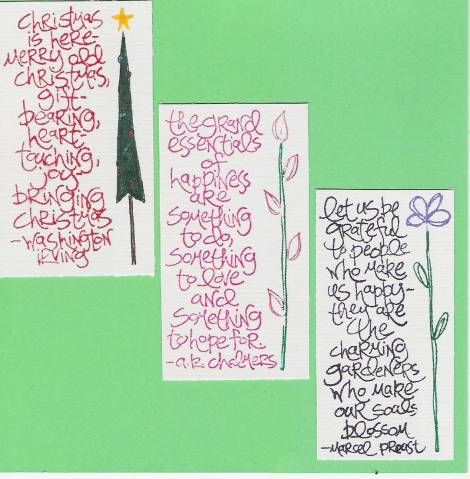 christmas
is here-
merry old
christmas,
gift-
bearing,
heart-
touching,
joy-
bringing
christmas
-washington
irving
the grand
essentials
of
happiness
are
something
to do,
something
to love
and
something
to hope for
-a.k. chalmers
let us be
grateful
to people
who make
us happy-
they are
the
charming
gardeners
who make
our souls
blossom
-marcel proust